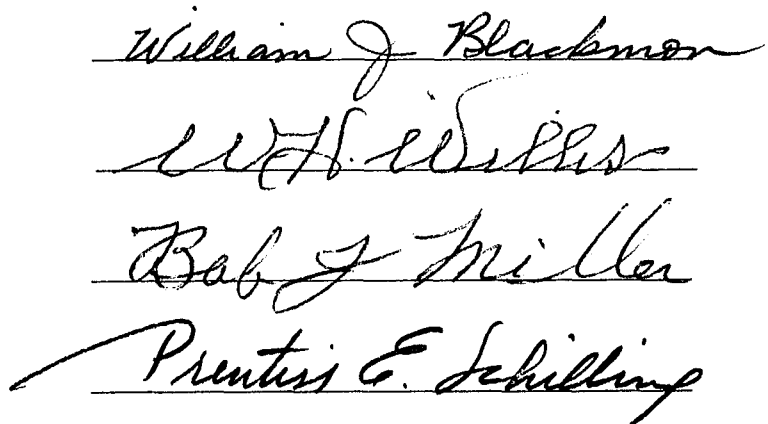 William J Blackmon
W. H. Willis
Bob F Miller
Prentiss E. Schilling